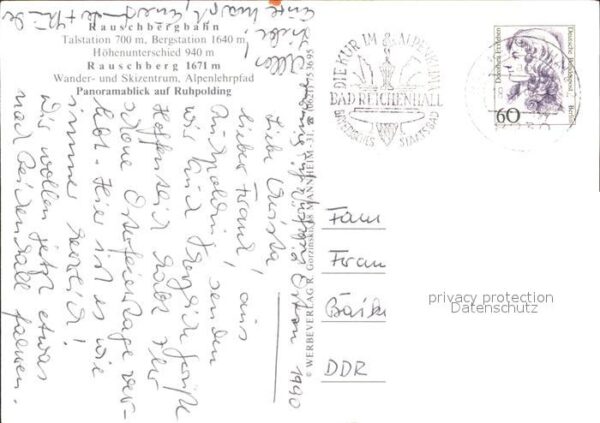 Rauschbergbahn
Talstation 700 m, Bergstation 1640 m
Höhenunterschied 940 m
Rauschberg 1671 m
Wander- und Skizentrum, Alpenlehrpfad
Panoramablick auf Ruhpolding
DIE KUR IM ALPENKLIMA
BAD REICHENHALL
BAYERISCHES STAATSBAD
Dorothea Erxleben
Deutsche Bundespost Berlin
60
© WERBEVERLAG R. Gorzinski, 68 MANNHEIM-31, ☎ (0621) 753695
Ostern 1990
Liebe Christa
lieber Frank, aus
Ruhpolding senden
wir Euch herzliche Grüße
Hoffentlich habt Ihr
schöne Osterfeiertage ver-
lebt. Hier ist es wie
immer herrlich!
Wir wollen jetzt etwas
nach Reichenhall fahren.
Fam
Fran
DDR
privacy protection
Datenschutz